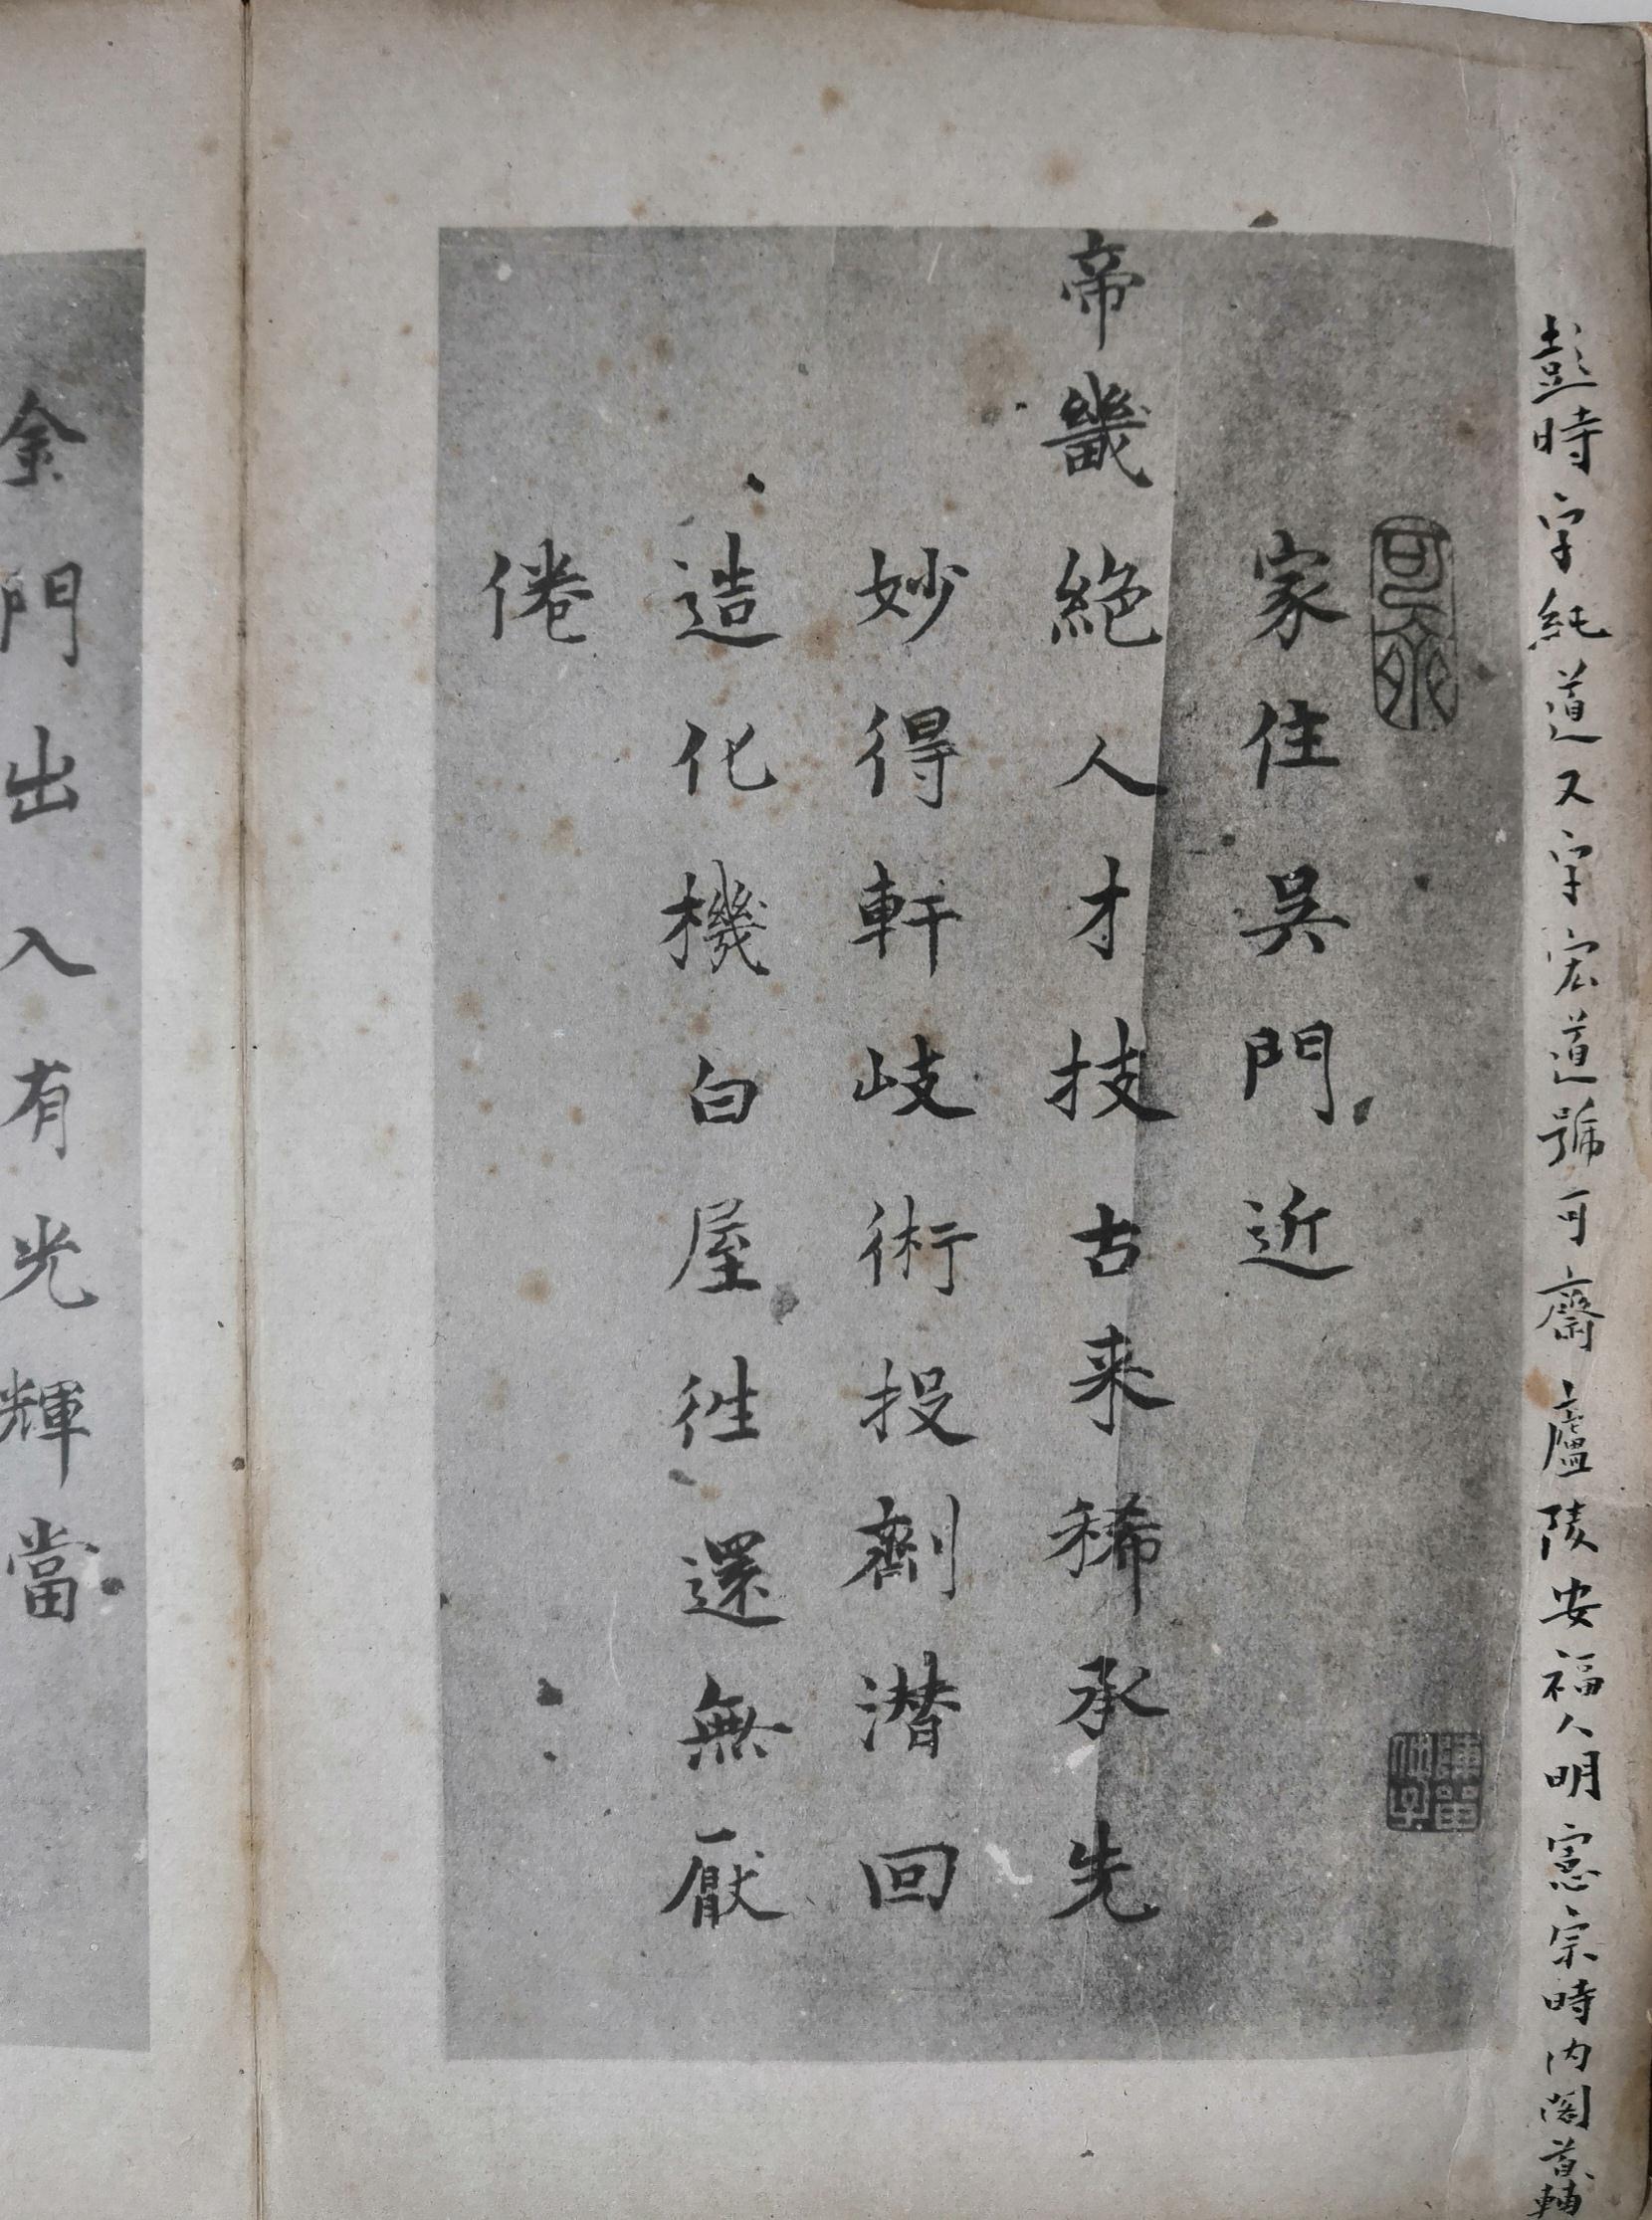 彭時字純道又字宏道號可齋廬陵安福人明憲宗時內閣首輔
可齋
家住吳門近
帝畿絕人才技古来稀承先
妙得軒岐術投劑潛回
造化機白屋徃還無厭
倦
金門出入有光輝當